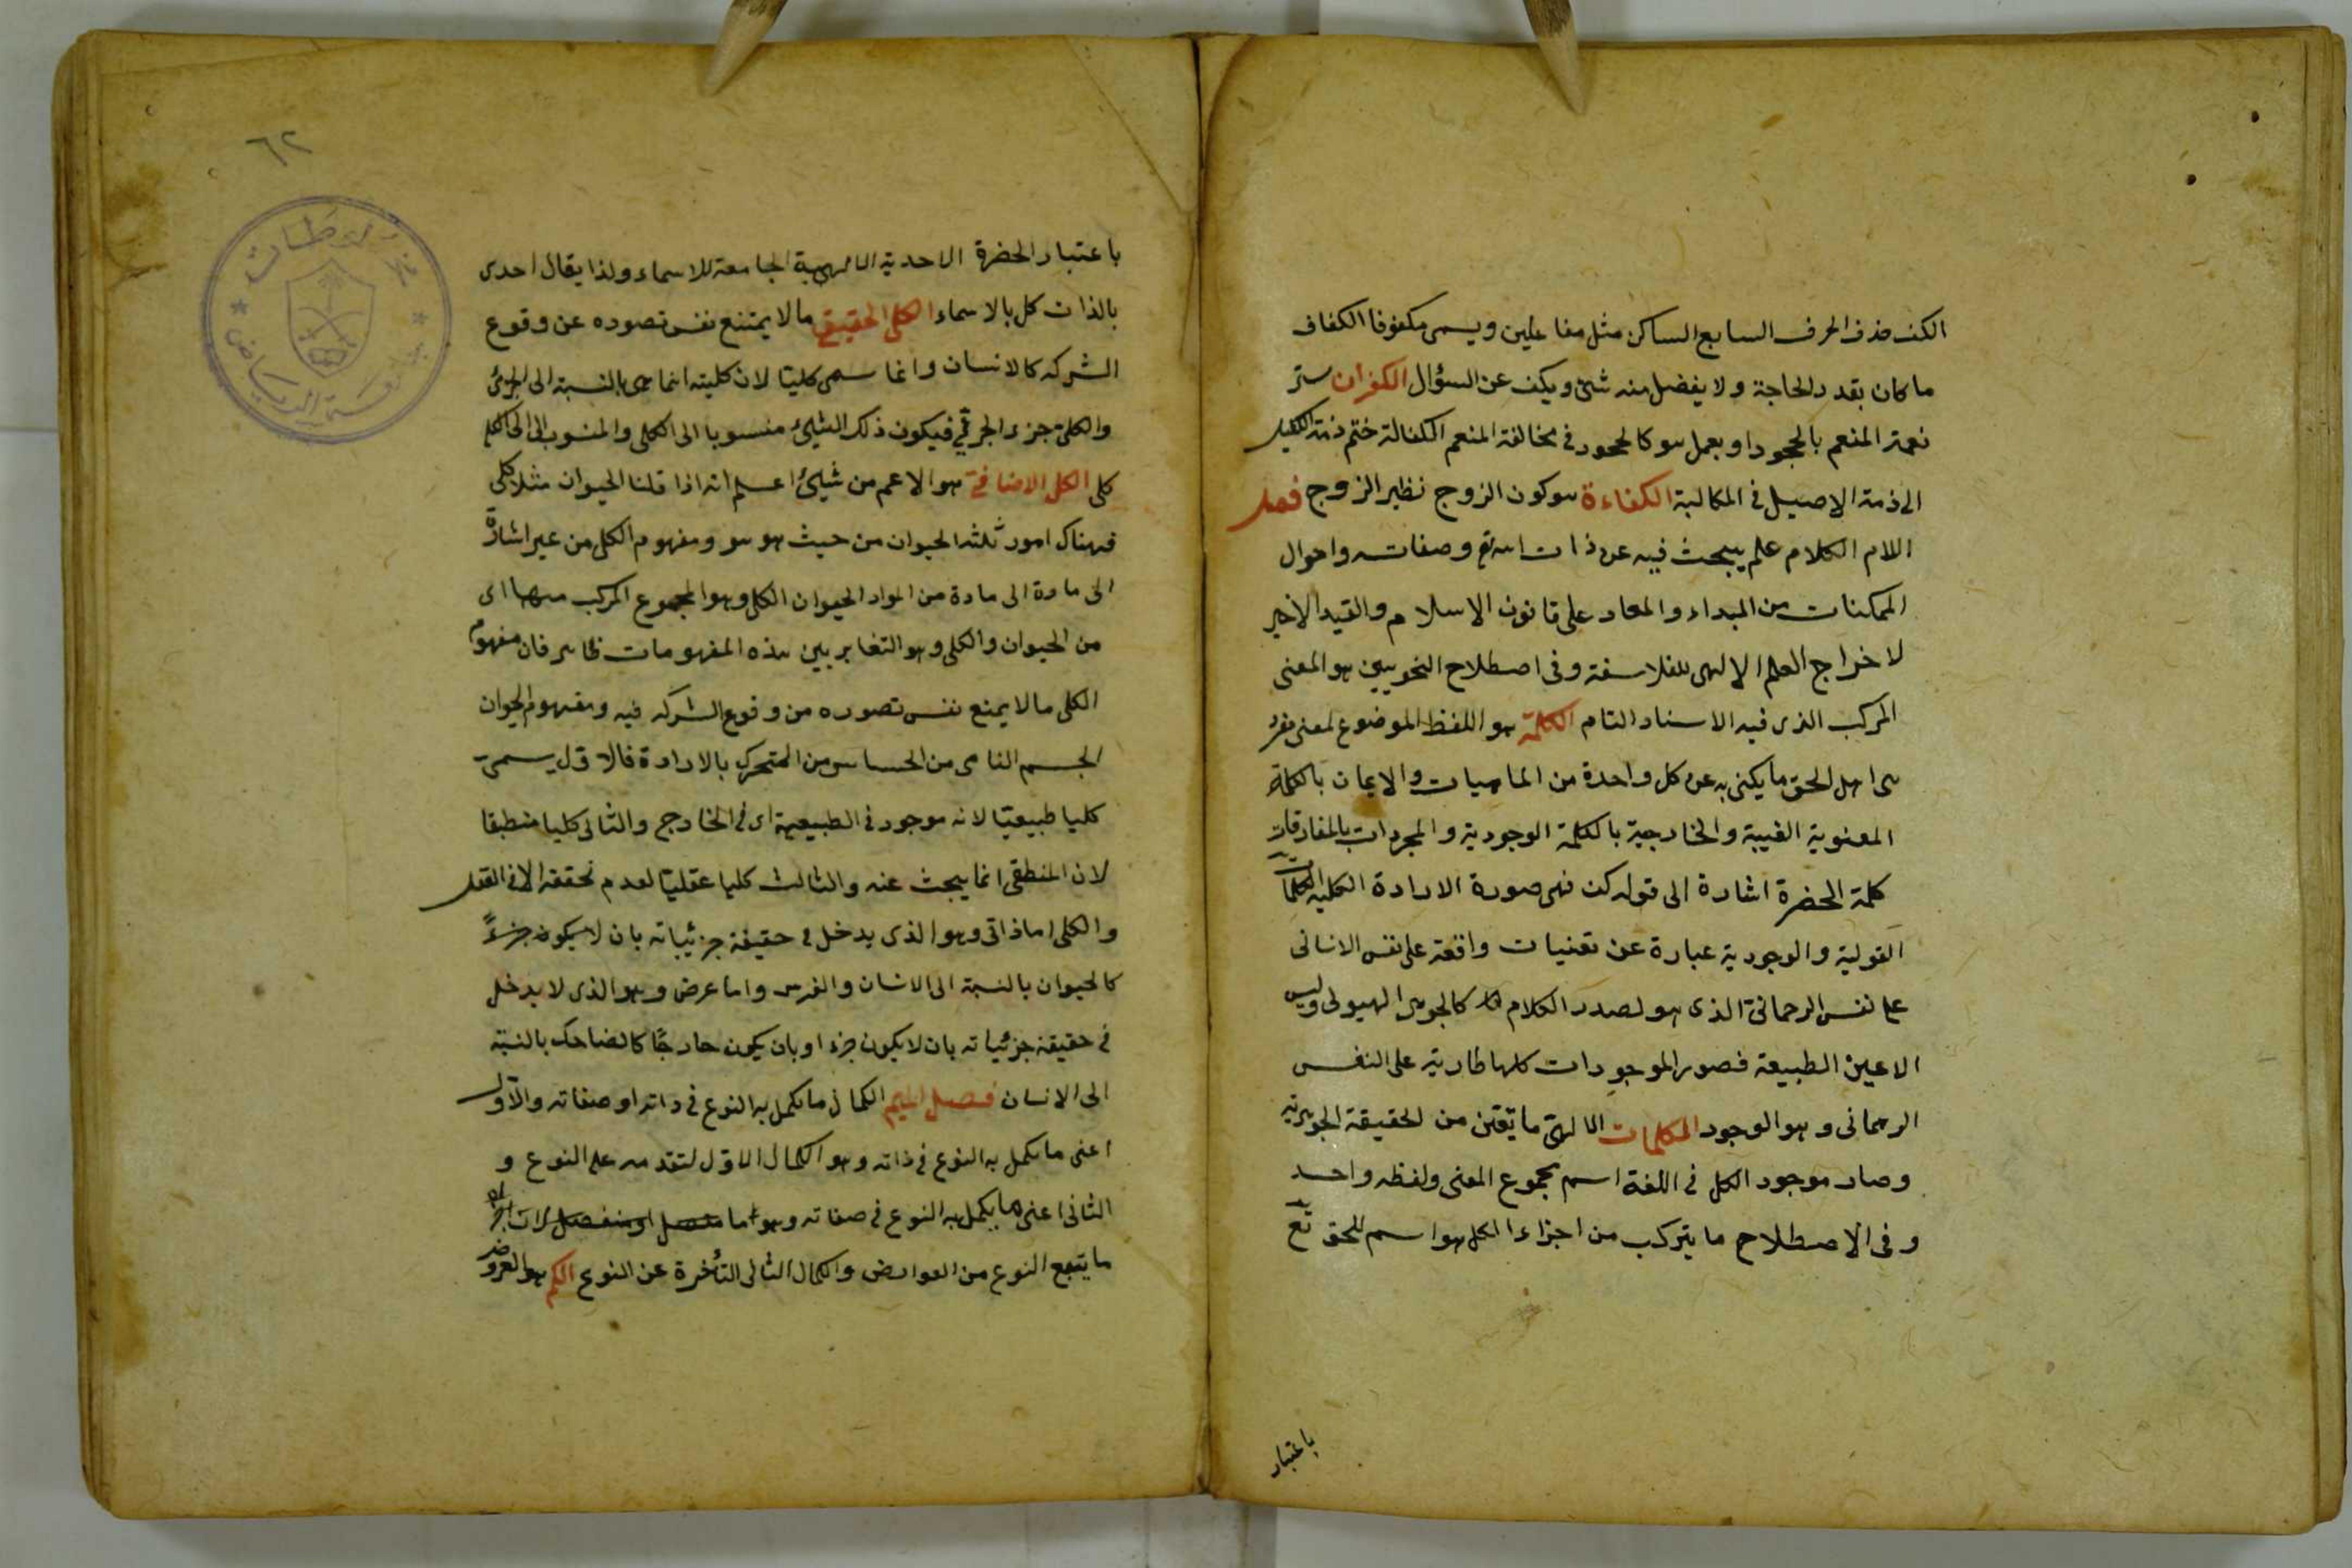 الكف حذف الحرف السابع الساكن مثل مفاعلين ويسمى مكفوفا الكفاف
ما كان بقدر الحاجة ولا يفضل منه شئ ويكف عن السؤال الكفران ستر
نعمة المنعم بالجحود او بعمل هو كالجحود في مخالفة المنعم الكفالة ختم ذمة الكفيل
الى ذمة الاصيل في المكالبة الكفاءة هو كون الزوج نظير الزوج فصل
اللام الكلام علم يبحث فيه عن ذات الله تع وصفاته واحوال
الممكنات من المبداء والمعاد على قانون الاسلام والقيد الاخير
لاخراج العلم الالهى للفلاسفة وفى اصطلاح النحويين هو المعنى
المركب الذى فيه الاسناد التام الكلمة هو اللفظ الموضوع لمعنى مفرد
اهل الحق ما يكنى به عن كل واحدة من الماهيات والايمان بالكلمة
المعنوية الغيبة والخارجية بالكلمة الوجودية والمجردات بالمفارقات
كلمة الحضرة اشارة الى قوله كن فهى صورة الارادة الكلية الكلمات
القولية والوجودية عبارة عن تعنيات واقعة على نفس الانسانى
على نفس الرحمانى الذى هو لصدر الكلام كالجوهر الهيولى وليس
الاعين الطبيعة فصور الموجودات كلها طارية على النفس
الرحمانى وهو الوجود الكلمات الالهى ما تعين من الحقيقة الجوهرية
وصار موجود الكل في اللغة اسم مجموع المعنى ولفظه واحد
وفى الاصطلاح ما يتركب من اجزاء الكل هو اسم للحق تع
باعتبار
٦٢
باعتبار الحضرة الاحدية الالهية الجامعة للاسماء ولذا يقال احدى
بالذات كل بالاسماء الكلى الحقيقى ما لا يمتنع نفس تصوره عن وقوع
الشركه كالانسان وانما سمى كليا لان كليته انما هى بالنسبة الى الجزئى
والكلى جزء الجزئى فيكون ذلك الشئ منسوبا الى الكلى والمنسوب الى الكلى
كلى الكلى الاضافى هو الاعم من شئ اعلم انه اذا قلنا الحيوان مثلا كلى
فهناك امور ثلثه الحيوان من حيث هو هو ومفهوم الكلى من غير اشارة
الى مادة الى مادة من المواد الحيوان الكلى وهو المجموع المركب منهما اى
من الحيوان والكلى وهو التغاير بين هذه المفهومات ظاهر فان مفهوم
الكلى ما لا يمنع نفس تصوره من وقوع الشركه فيه ومفهوم الحيوان
الجسم النامى من الحساس من المتحرك بالارادة فالاول يسمى
كليا طبيعيا لانه موجود في الطبيعية اى في الخارج والثانى كليا منطبقا
لان المنطقى انما يبحث عنه والثالث كليا عقليا لعدم تحققه الا في العقل
والكلى اما ذاتى وهو الذى يدخل في حقيقة جزئياته بان لا يكون جزءً
كالحيوان بالنسبة الى الانسان والفرس واما عرض وهو الذى لا يدخل
في حقيقة جزئياته بان لا يكون جزءا وبان يكون خارجا كالضاحك بالنسبة
الى الانسان فصل الميم الكمال ما يكمل به النوع في ذاته او صفاته والاول
اعنى ما يكمل به النوع في ذاته وهو الكمال الاول لتقدمه على النوع و
الثانى اعنى ما يكمل به النوع في صفاته وهو اما متصل او منفصل لان
ما يتبع النوع من العوارض والكمال الثانى المتأخرة عن النوع الكم هو العروض